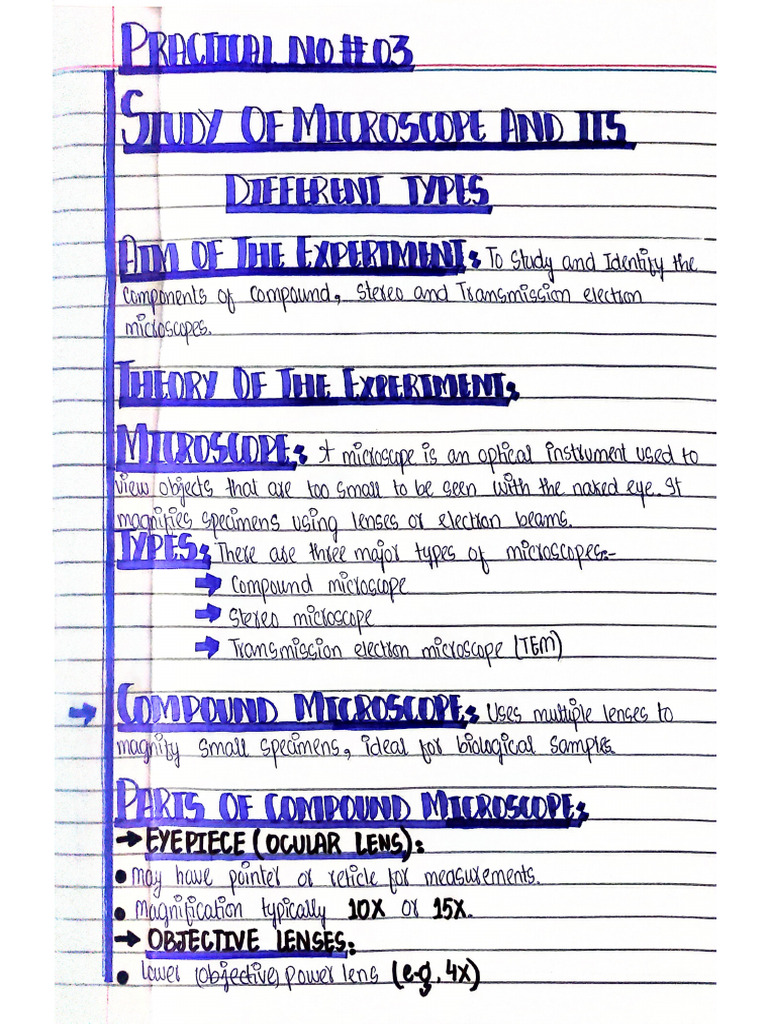 PRACTICAL NO # 03
STUDY OF MICROSCOPE AND ITS
DIFFERENT TYPES
AIM OF THE EXPERIMENT: To Study and Identify the
components of compound, stereo and Transmission electron
microscopes.
THEORY OF THE EXPERIMENT:
MICROSCOPE: A microscope is an optical instrument used to
view objects that are too small to be seen with the naked eye. It
magnifies specimens using lenses or electron beams.
TYPES: There are three major types of microscopes:-
→ Compound microscope
→ Stereo microscope
→ Transmission electron microscope (TEM)
→ COMPOUND MICROSCOPE: Uses multiple lenses to
magnify small specimens, ideal for biological samples.
PARTS OF COMPOUND MICROSCOPE:
→ EYEPIECE (OCULAR LENS):
• may have pointer or reticle for measurements.
• magnification typically 10X or 15X.
→ OBJECTIVE LENSES:
• lower (objective) power lens (e.g, 4X)